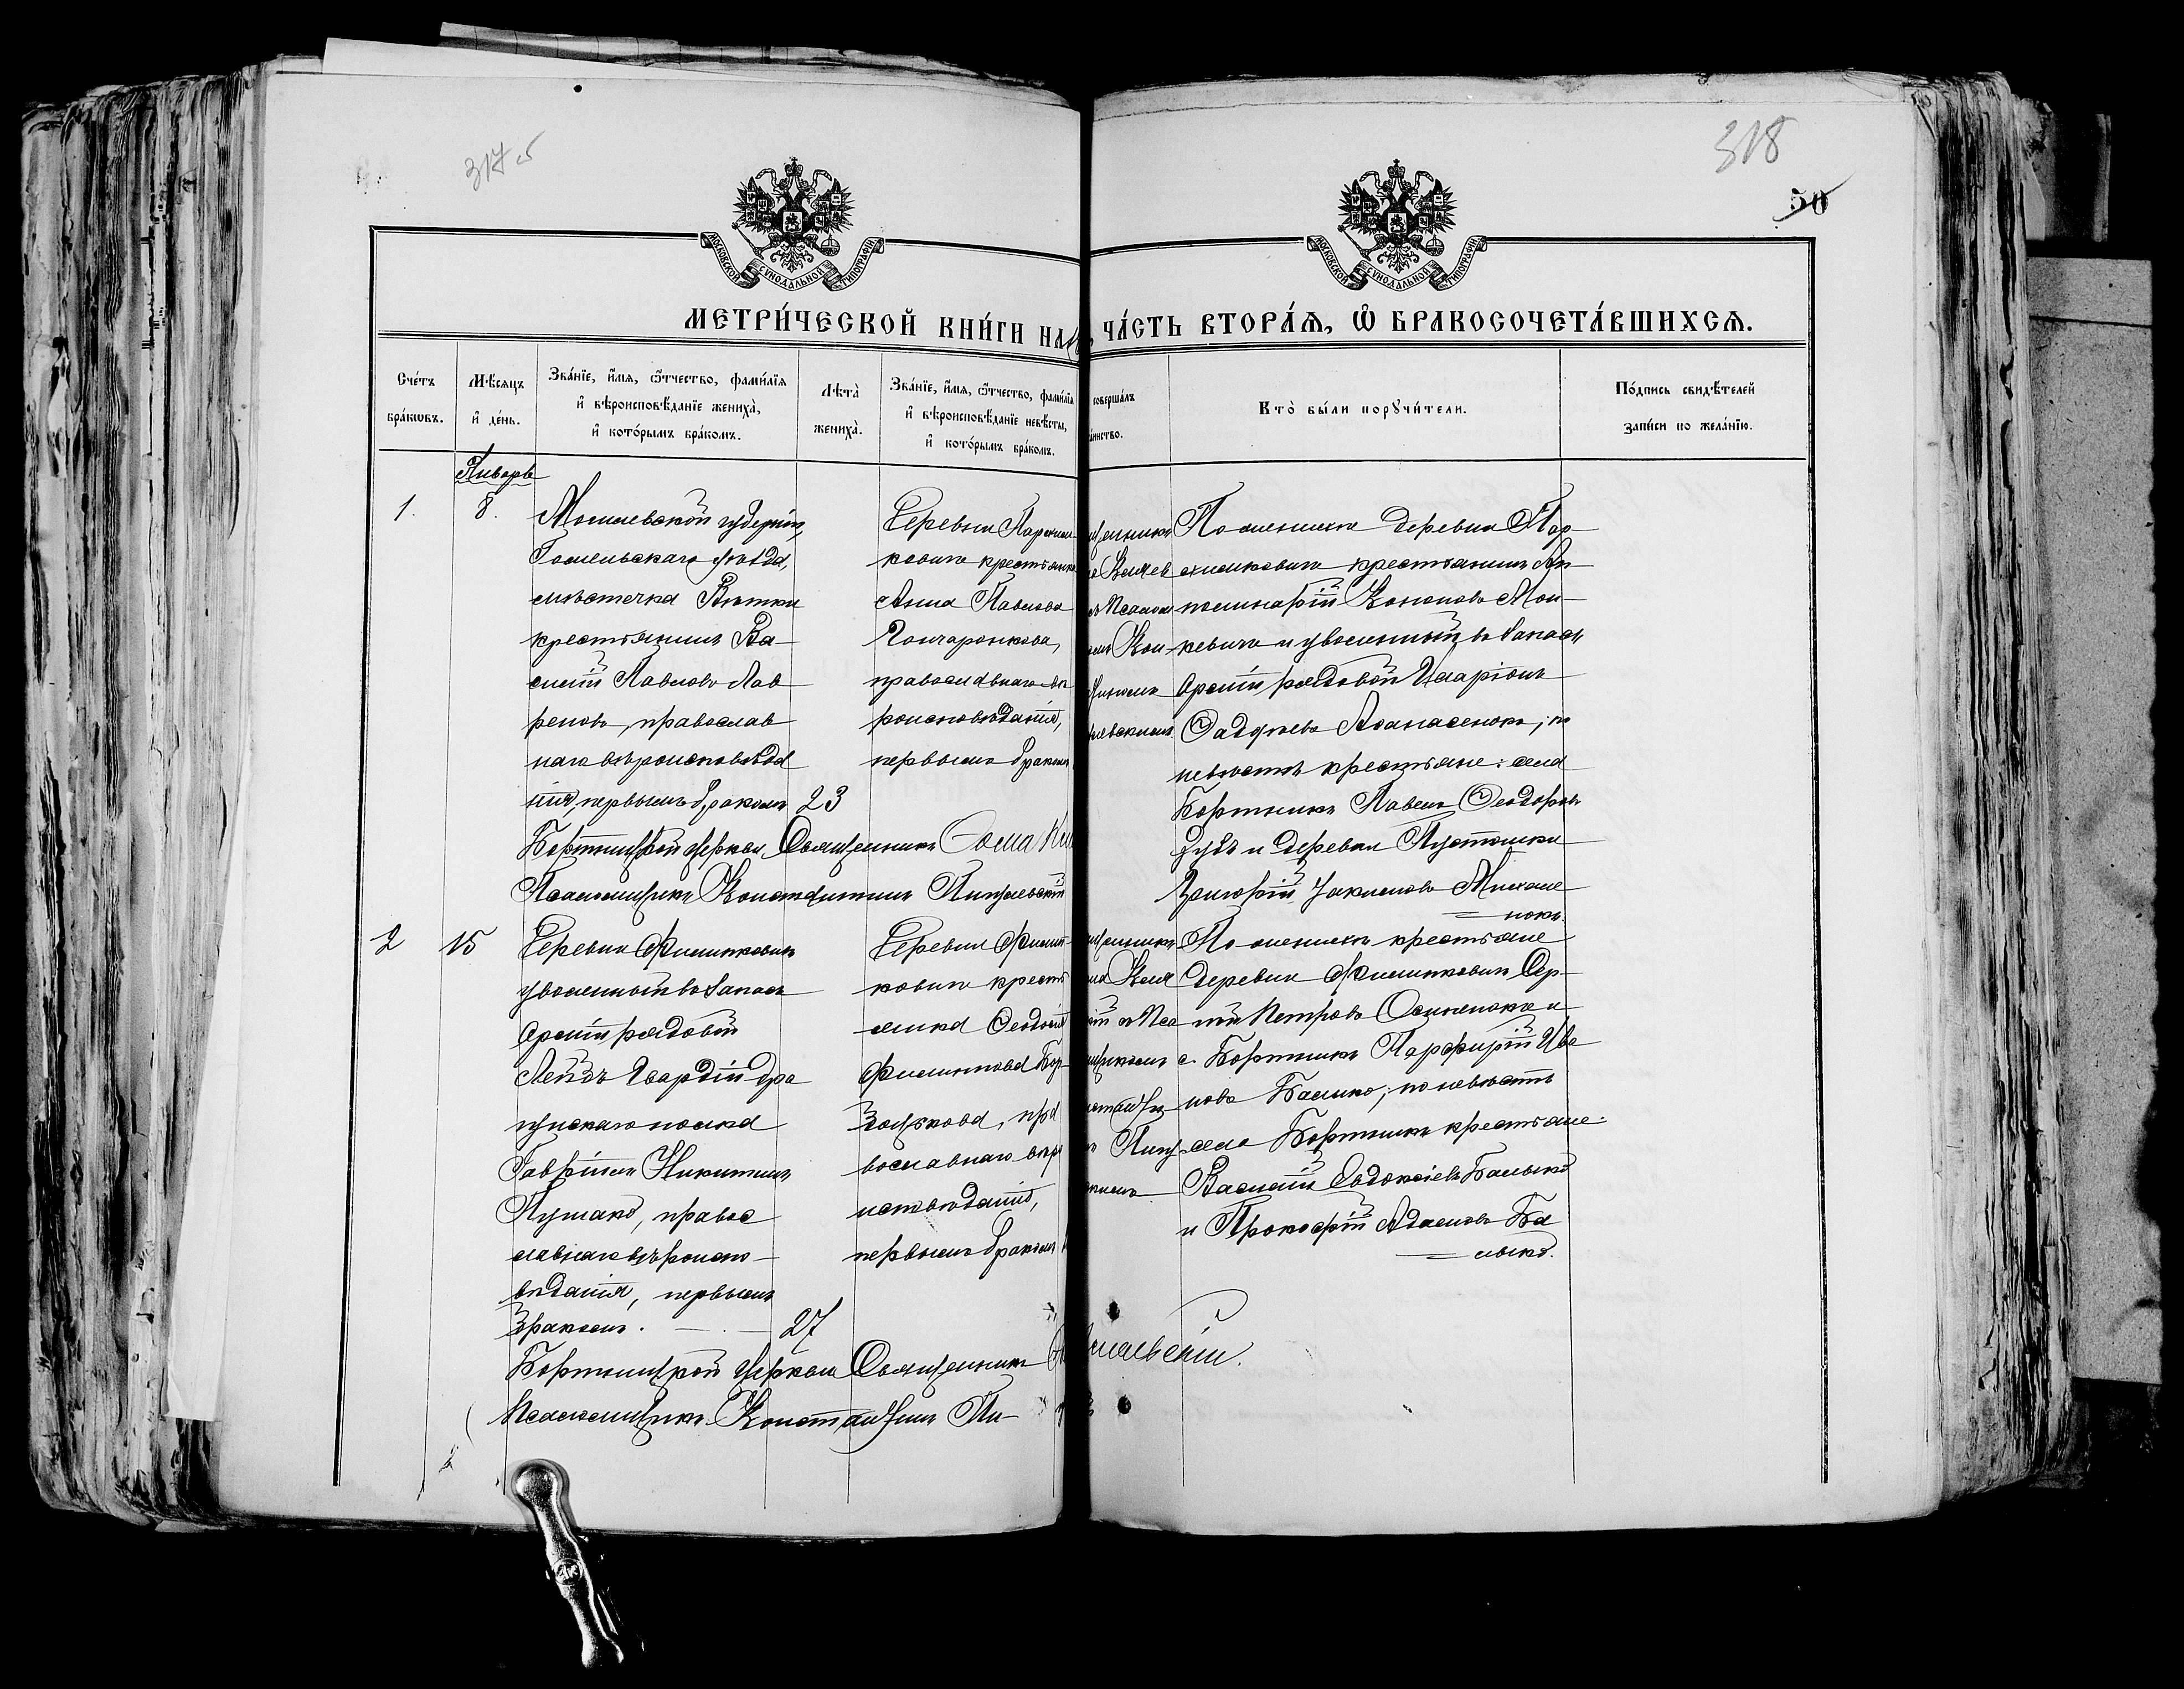 317 об
318
50
МОСКОВСКОЙ СУНОДАЛЬНОЙ ТИПОГРАФІИ
МОСКОВСКОЙ СУНОДАЛЬНОЙ ТИПОГРАФІИ
МЕТРИ́ЧЕСКОЙ КНИ́ГИ НА
ЧА́СТЬ ВТОРА́Я, Ѡ БРАКОСОЧЕТА́ВШИХСЯ.
Сче́тъ
бра́кωвъ.
Мѣ́сяцъ
и҆ де́нь.
Зва́нїе, и҆́мя, ѻ҆́тчество, фами́лїя
и҆ вѣроисповѣ́данїе жениха̀,
и҆ кото́рымъ бра́комъ.
Лѣта̀
жениха̀.
Зва́нїе, и҆́мя, ѻ҆́тчество, фами́лїя
и҆ вѣроисповѣ́данїе невѣ́сты,
и҆ кото́рымъ бра́комъ.
соверша́лъ
инство.
Кто̀ бы́ли порꙋчи́тели.
По́дпись свидѣ́телей
за́писи по жела́нїю.
Январь
1.
8.
Могилевской губерніи,
Гомельскаго уѣзда,
мѣстечка Вѣтки
крестьянинъ Ва-
силій Павловъ Лав
реновъ, православ
наго вѣроисповѣда
нія, первымъ бракомъ
23
Деревни Пархим
ковичъ крестьянка
Анна Павлова
Гончаронкова,
православнаго вѣ
роисповѣданія,
первымъ бракомъ
По женихѣ деревни Пар
химковичъ крестьянинъ Ап
полинарій Кононовъ Мои-
кевичъ и уволенный въ запасъ
Арміи рядовой Иларіонъ
Фадѣевъ Афанасенокъ; по
невѣстѣ крестьяне: села
Бортникъ Павелъ Феодоровъ
Зубъ и деревни Пустошки
Григорій Іакимовъ Михале
нокъ.
Бортницкой церкви Священникъ Фома
Псаломщикъ Константинъ Пищевскій
2
15
Деревни Филипковичъ
уволенный въ запасъ
Арміи рядовой
Лейбъ Гвардіи дра
гунскаго полка
Гавріилъ Никитинъ
Лумако, правос
лавнаго вѣроиспо-
вѣданія, первымъ
бракомъ.
27
Деревни Филип-
ковичъ крестья
янка Феодосія
Филиппова Бор-
зоцкова, пра
вославнаго вѣро
исповѣданія,
первымъ бракомъ
По женихѣ крестьяне
деревни Филипковичъ Сер-
гій Петровъ Осипенокъ и
с. Бортникъ Парфирій Ива
новъ Балыко; по невѣстѣ
села Бортникъ крестьяне:
Василій Евдокіевъ Балыко
и Прокофій Адамовъ Ба
лыко.
Бортницкой Церкви Священникъ
Псаломщикъ Константинъ Пи-